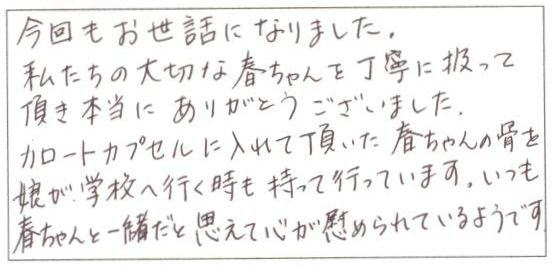 今回もお世話になりました。
私たちの大切な春ちゃんを丁寧に扱って
頂き本当にありがとうございました。
カロートカプセルに入れて頂いた春ちゃんの骨を
娘が学校へ行く時も持って行っています。いつも
春ちゃんと一緒だと思えて心が慰められているようです